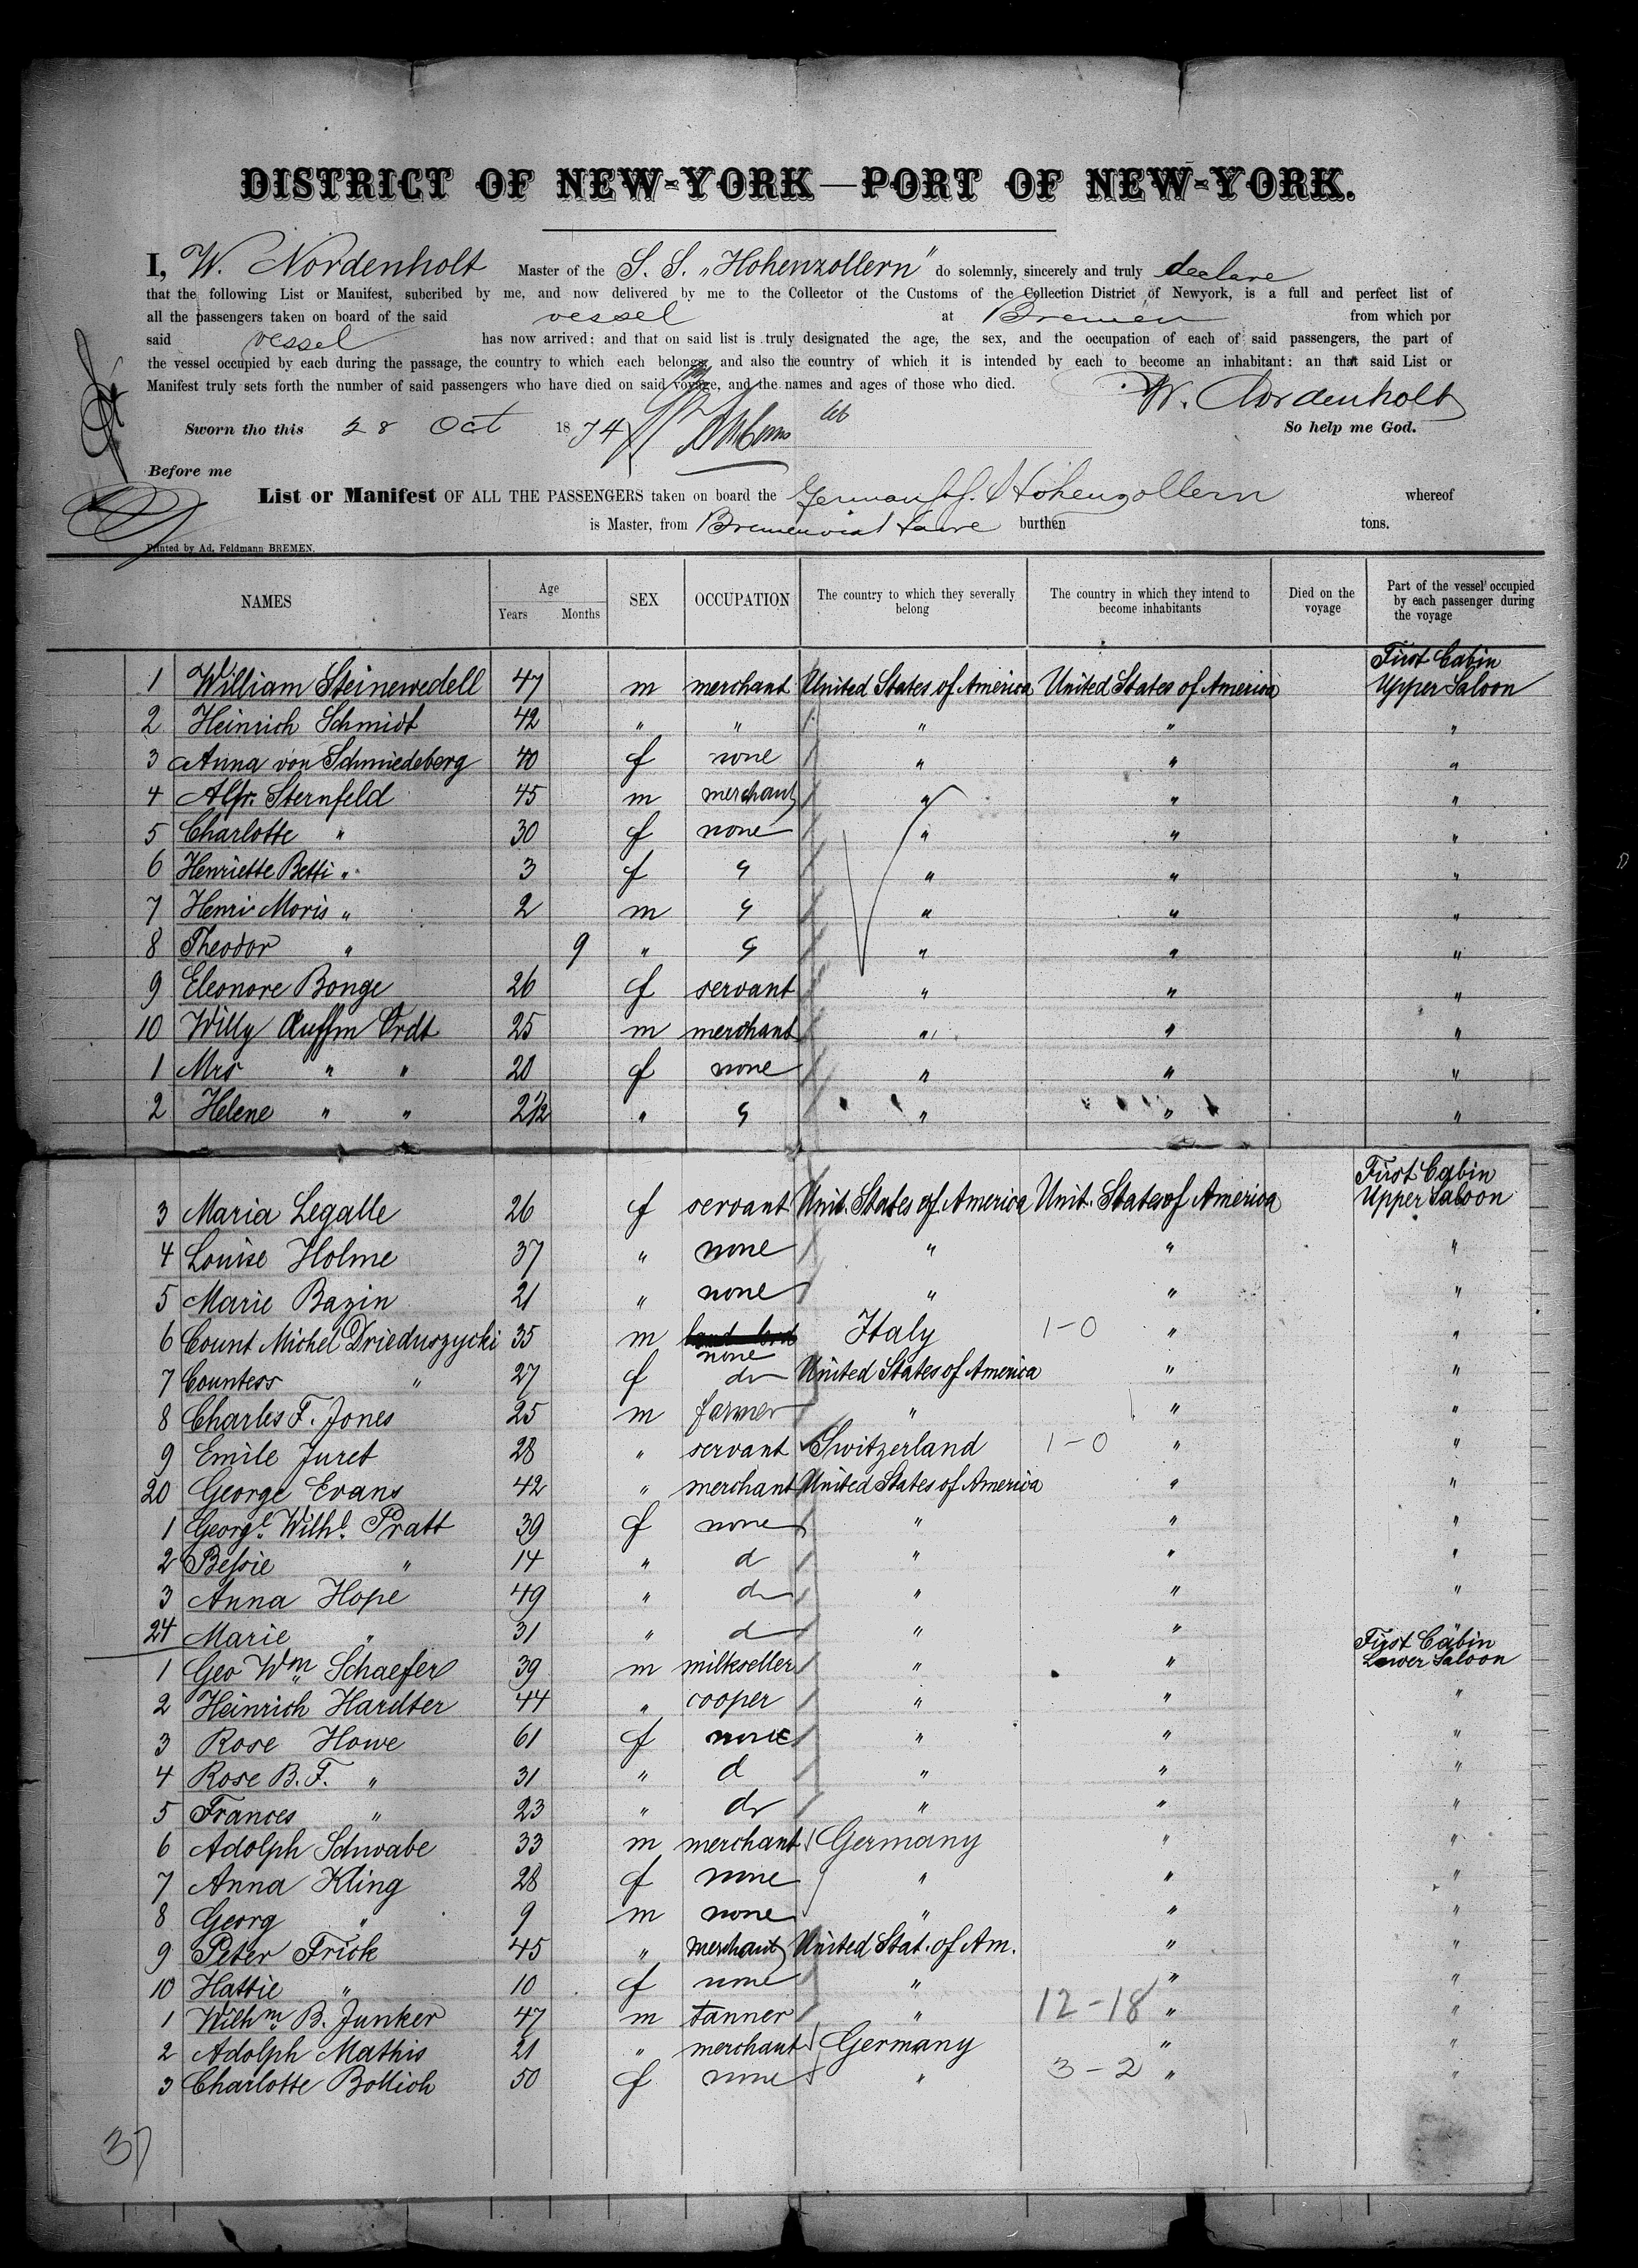 DISTRICT OF NEW-YORK—PORT OF NEW-YORK.
I, W. Nordenholt Master of the S. S. „Hohenzollern" do solemnly, sincerely and truly declare
that the following List or Manifest, subcribed by me, and now delivered by me to the Collector ot the Customs of the Collection District of Newyork, is a full and perfect list of
all the passengers taken on board of the said vessel at Bremen from which por
said vessel has now arrived: and that on said list is truly designated the age, the sex, and the occupation of each of said passengers, the part of
the vessel occupied by each during the passage, the country to which each belongs, and also the country of which it is intended by each to become an inhabitant: an that said List or
Manifest truly sets forth the number of said passengers who have died on said voyage, and the names and ages of those who died.
W. Nordenholt
Sworn tho this 28 Oct 1874 So help me God.
Before me
List or Manifest OF ALL THE PASSENGERS taken on board the German S.S. Hohenzollern whereof
is Master, from Bremen via Havre burthen tons.
Printed by Ad. Feldmann BREMEN.
NAMES Age Years Months SEX OCCUPATION The country to which they severally belong The country in which they intend to become inhabitants Died on the voyage Part of the vessel occupied by each passenger during the voyage
1 William Steinewedell 47 m merchant United States of America United States of America First Cabin Upper Saloon
2 Heinrich Schmidt 42 " " " " "
3 Anna von Schmiedeberg 40 f none " " "
4 Alfr. Sternfeld 45 m merchant " " "
5 Charlotte " 30 f none " " "
6 Henriette Betti " 3 f " " " "
7 Henri Moris " 2 m " " " "
8 Theodor " 9 " " " " "
9 Eleonore Bonge 26 f servant " " "
10 Willy Auffm Ordt 25 m merchant " " "
1 Mrs " " 20 f none " " "
2 Helene " " 2½ " " " " "
3 Maria Legalle 26 f servant Unit. States of America Unit. States of America First Cabin Upper Saloon
4 Louise Holme 37 " none " " "
5 Marie Bazin 21 " none " " "
6 Count Michel Drieduszycki 35 m none Italy 1-0 " "
7 Countess " 27 f do United States of America " "
8 Charles F. Jones 25 m farmer " " "
9 Emile Juret 28 " servant Switzerland 1-0 " "
20 George Evans 42 " merchant United States of America " "
1 Georg.e Wilh.e Pratt 39 f none " " "
2 Bessie " 14 " d " " "
3 Anna Hope 49 " do " " "
24 Marie " 31 " d " " "
1 Geo Wm Schaefer 39 m milkseller " " First Cabin Lower Saloon
2 Heinrich Hardter 44 " cooper " " "
3 Rose Howe 61 f none " " "
4 Rose B. F. " 31 " d " " "
5 Frances " 23 " do " " "
6 Adolph Schwabe 33 m merchant Germany " "
7 Anna Kling 28 f none " " "
8 Georg " 9 m none " " "
9 Peter Frick 45 " merchant United Stat. of Am. " "
10 Hattie " 10 f none " " "
1 Wilhm. B. Junker 47 m tanner " 12-18 " "
2 Adolph Mathis 21 " merchant Germany " "
3 Charlotte Bollich 50 f none " 3-2 " "
37